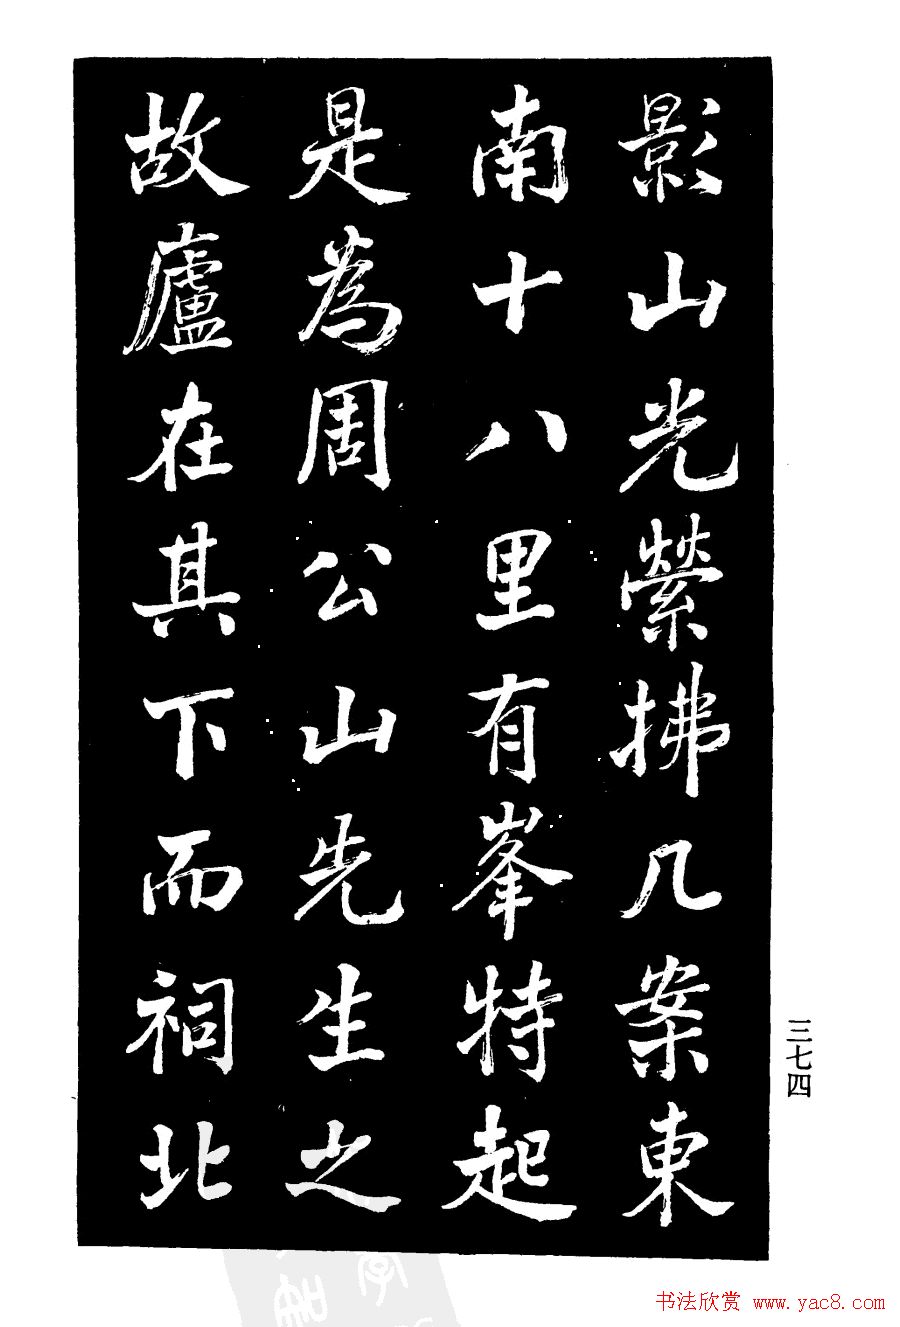 影山光縈拂几案東
南十八里有峯特起
是為周公山先生之
故廬在其下而祠北
三七四
书法欣赏 www.yac8.com